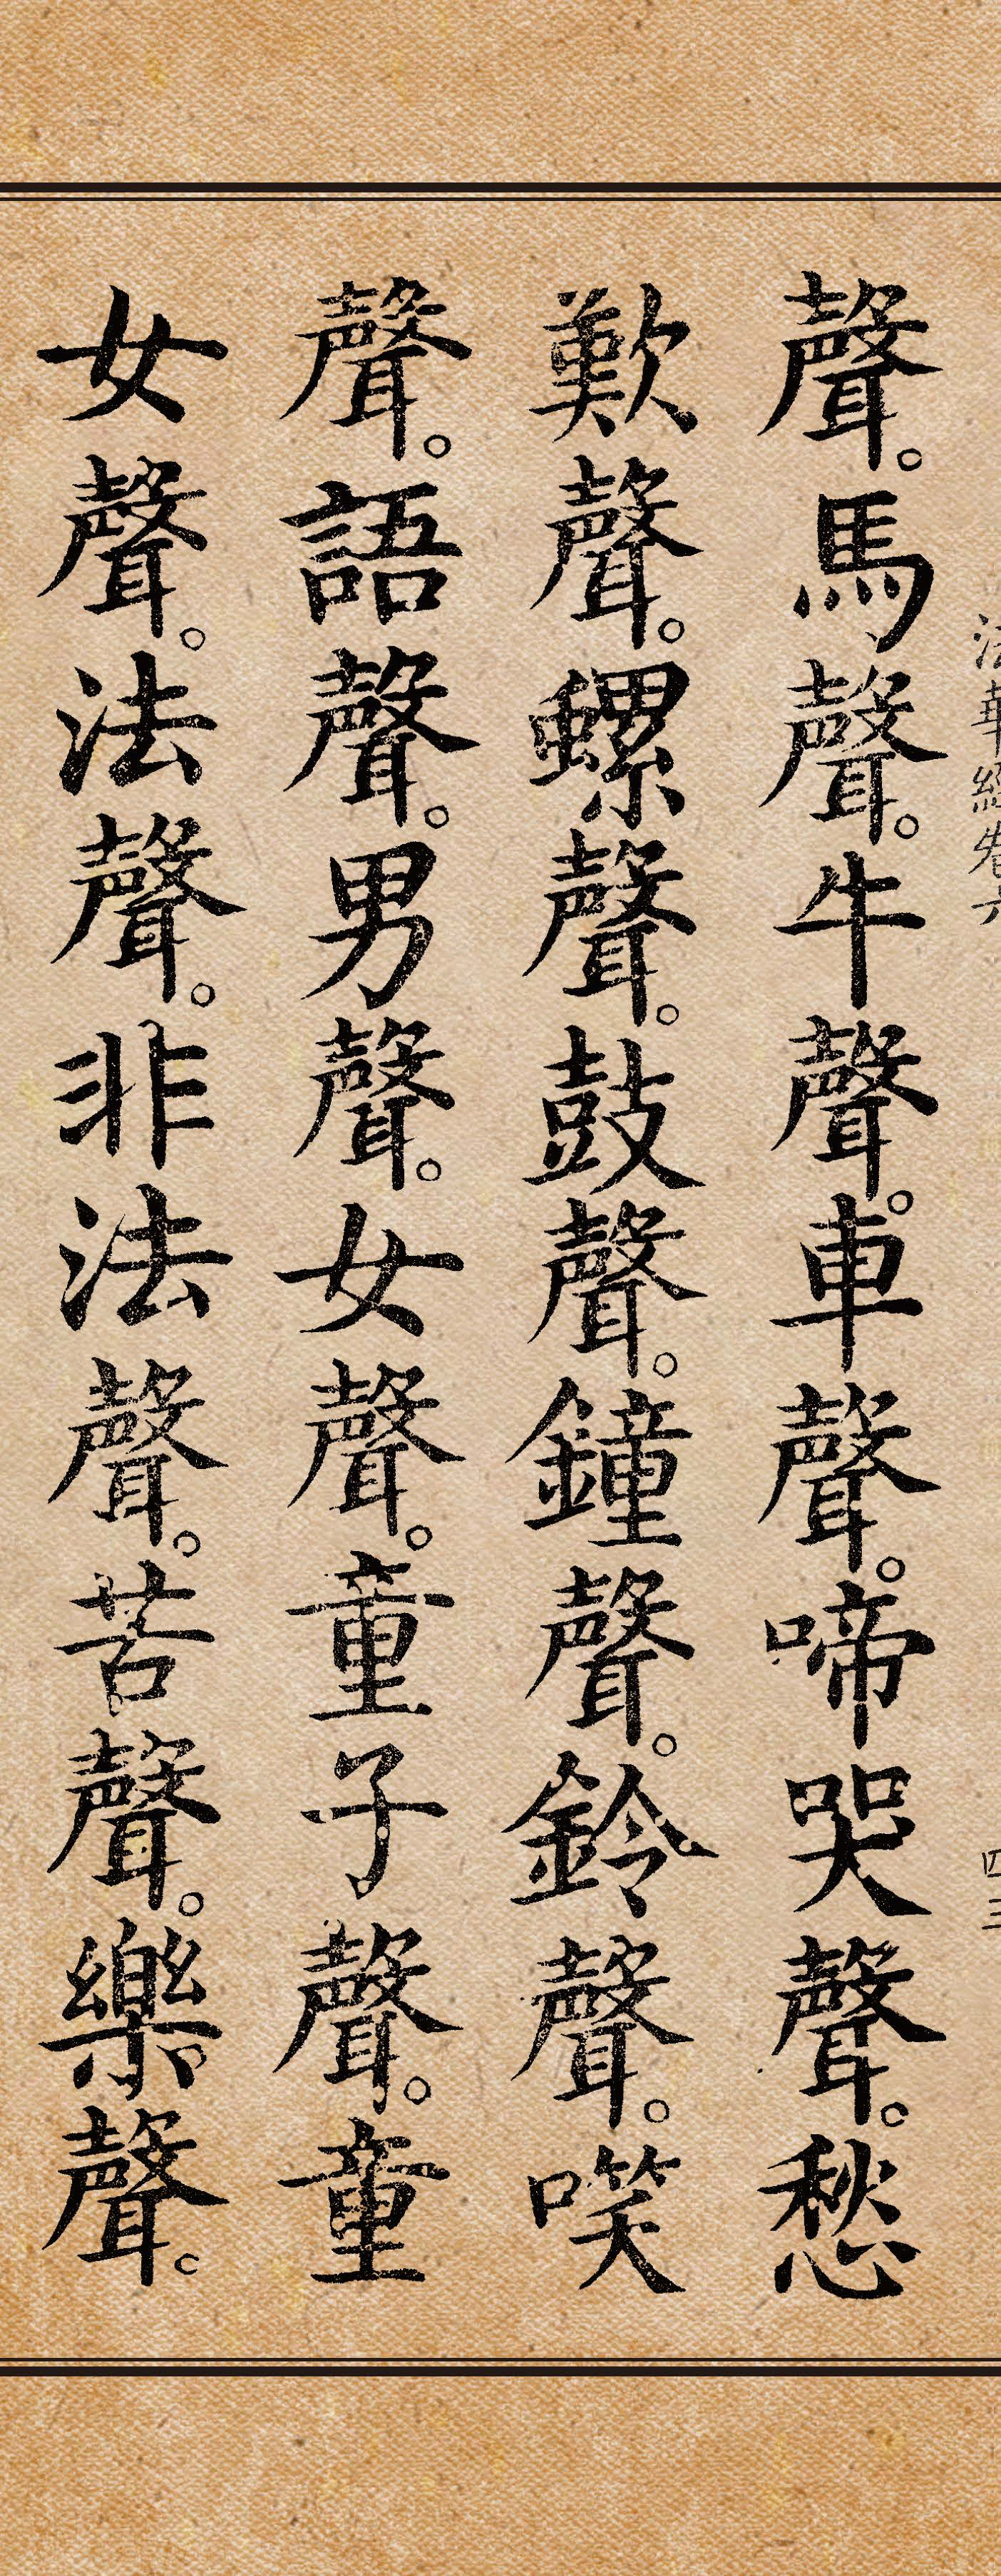 法華經卷六
四三
聲。馬聲。牛聲。車聲。啼哭聲。愁
歎聲。螺聲。鼓聲。鐘聲。鈴聲。𠯋
聲。語聲。男聲。女聲。童子聲。童
女聲。法聲。非法聲。苦聲。樂聲。